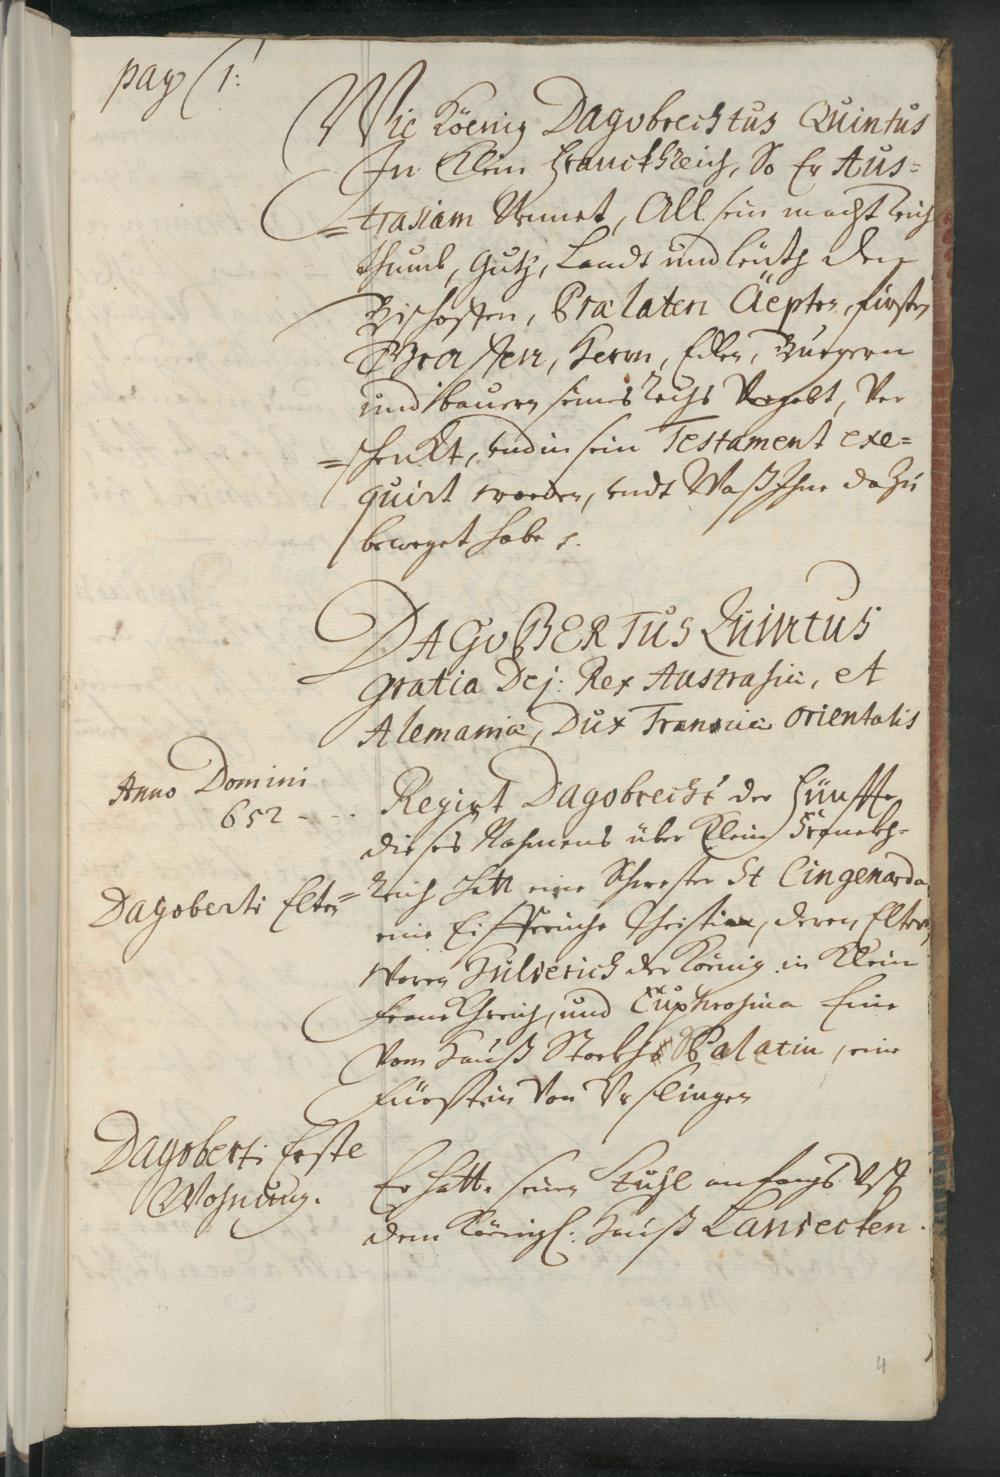 pag (1:
Wie Köenig Dagobrechtus Quintus
In Klein Franckhreich, So Er Aus=
=trasiam Nennet, All sein macht reich
thumb, Gutz, Landt und leüth den
Bischoffen, Prælaten Äepten, fürsten
Graffen, Herrn, Edlen, Burgern
und bauern seines Reichs Vergabt, Ver
=schenkt, und in sein Testament exe=
quirt worden, undt Waß Ihne dazu
beweget habe
DAGOBERTUS Quintus
gratia Dej: Rex Austrasiæ, et
Alemaniæ, Dux Franciæ orientalis
Anno Domini
652 - - -
Regirt Dagobrecht der Fünffte
dieses Nahmens über Klein Franckh=
Dagoberti Elter=
reich hatt eine Schwester St Cingenarda
eine Eifferiche Christin, deren Eltern
Waren Hilderich der König in Klein
Franckhreich, und Euphrosina Eine
Vom Hauß Palatin, eine
Fürstin Von Urslingen
Dagoberti Erste
Wohnung.
Er hatte seinen Stuhl anfangs Vff
dem Königl: Hauß Landecken.
4